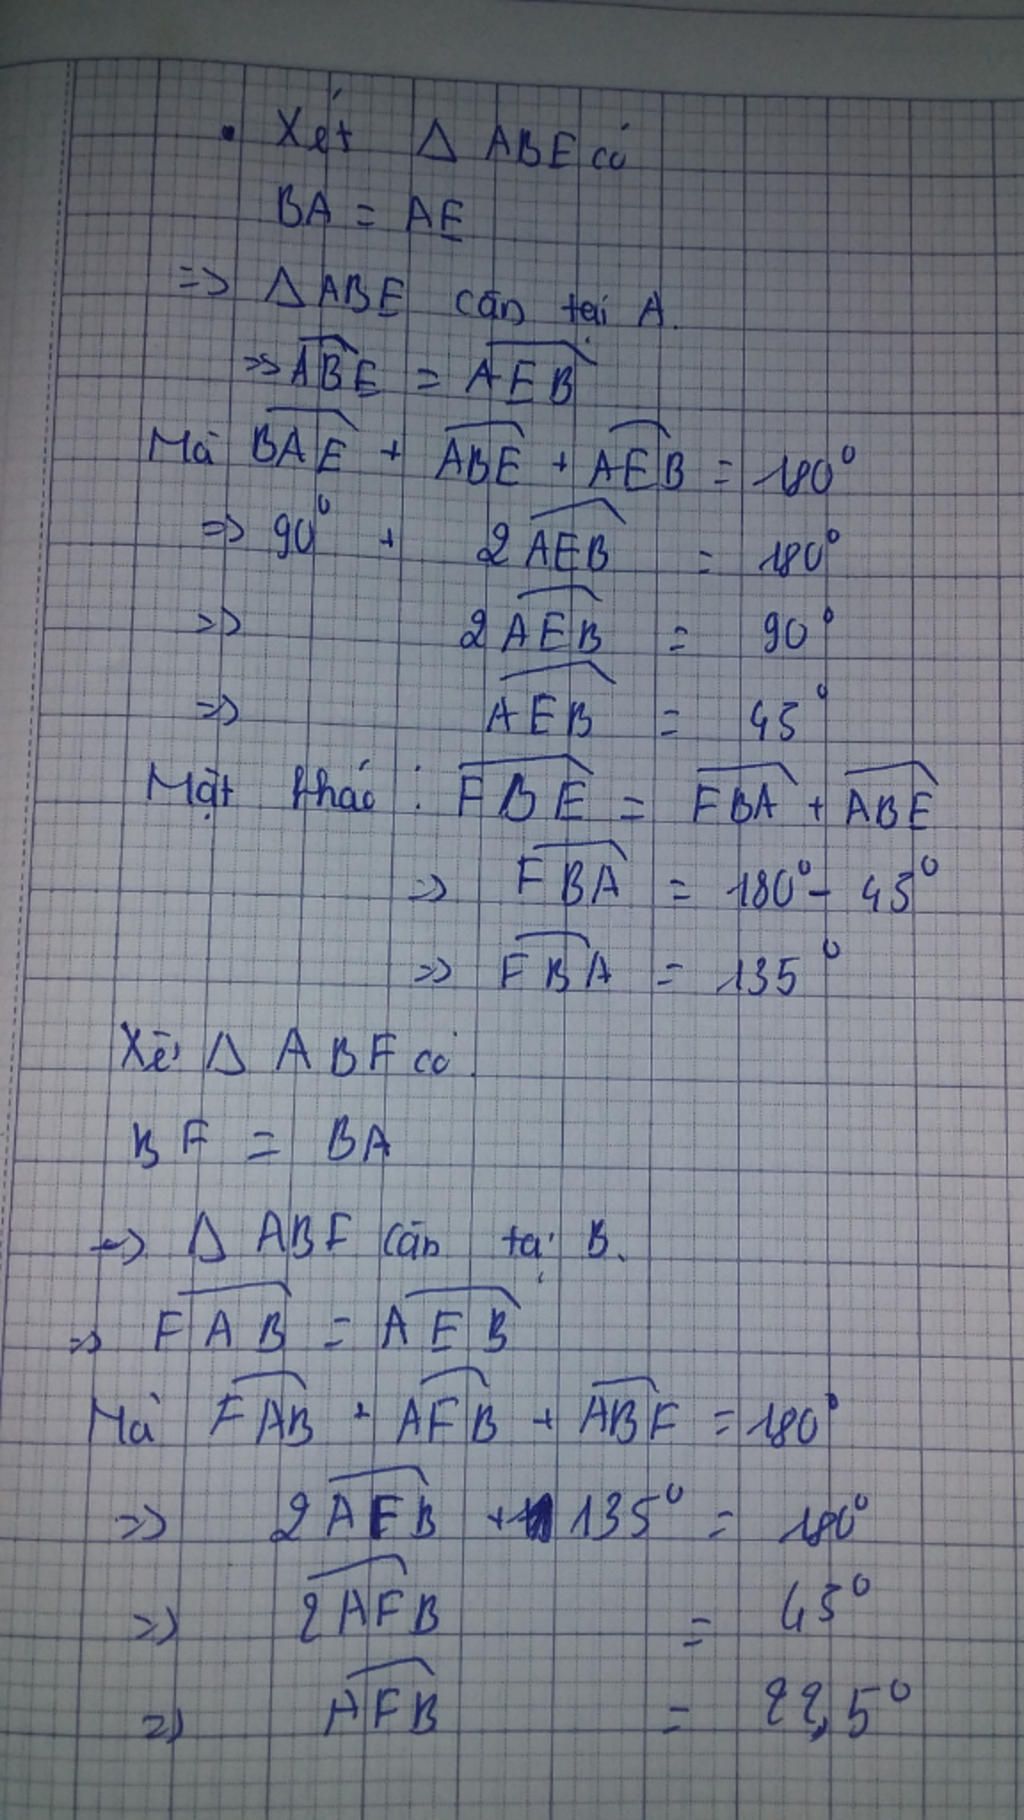 • Xét Δ ABE có
BA = AE
=> Δ ABE cân tại A.
=> ABE = AEB
Mà BAE + ABE + AEB = 180°
=> 90° + 2AEB = 180°
=> 2AEB = 90°
=> AEB = 45°
Mặt khác : FBE = FBA + ABE
=> FBA = 180° - 45°
=> FBA = 135°
Xét Δ ABF có.
BF = BA
=> Δ ABF cân tại B.
=> FAB = AFB
Mà FAB + AFB + ABF = 180°
=> 2AFB + 135° = 180°
=> 2AFB = 45°
=> AFB = 22,5°